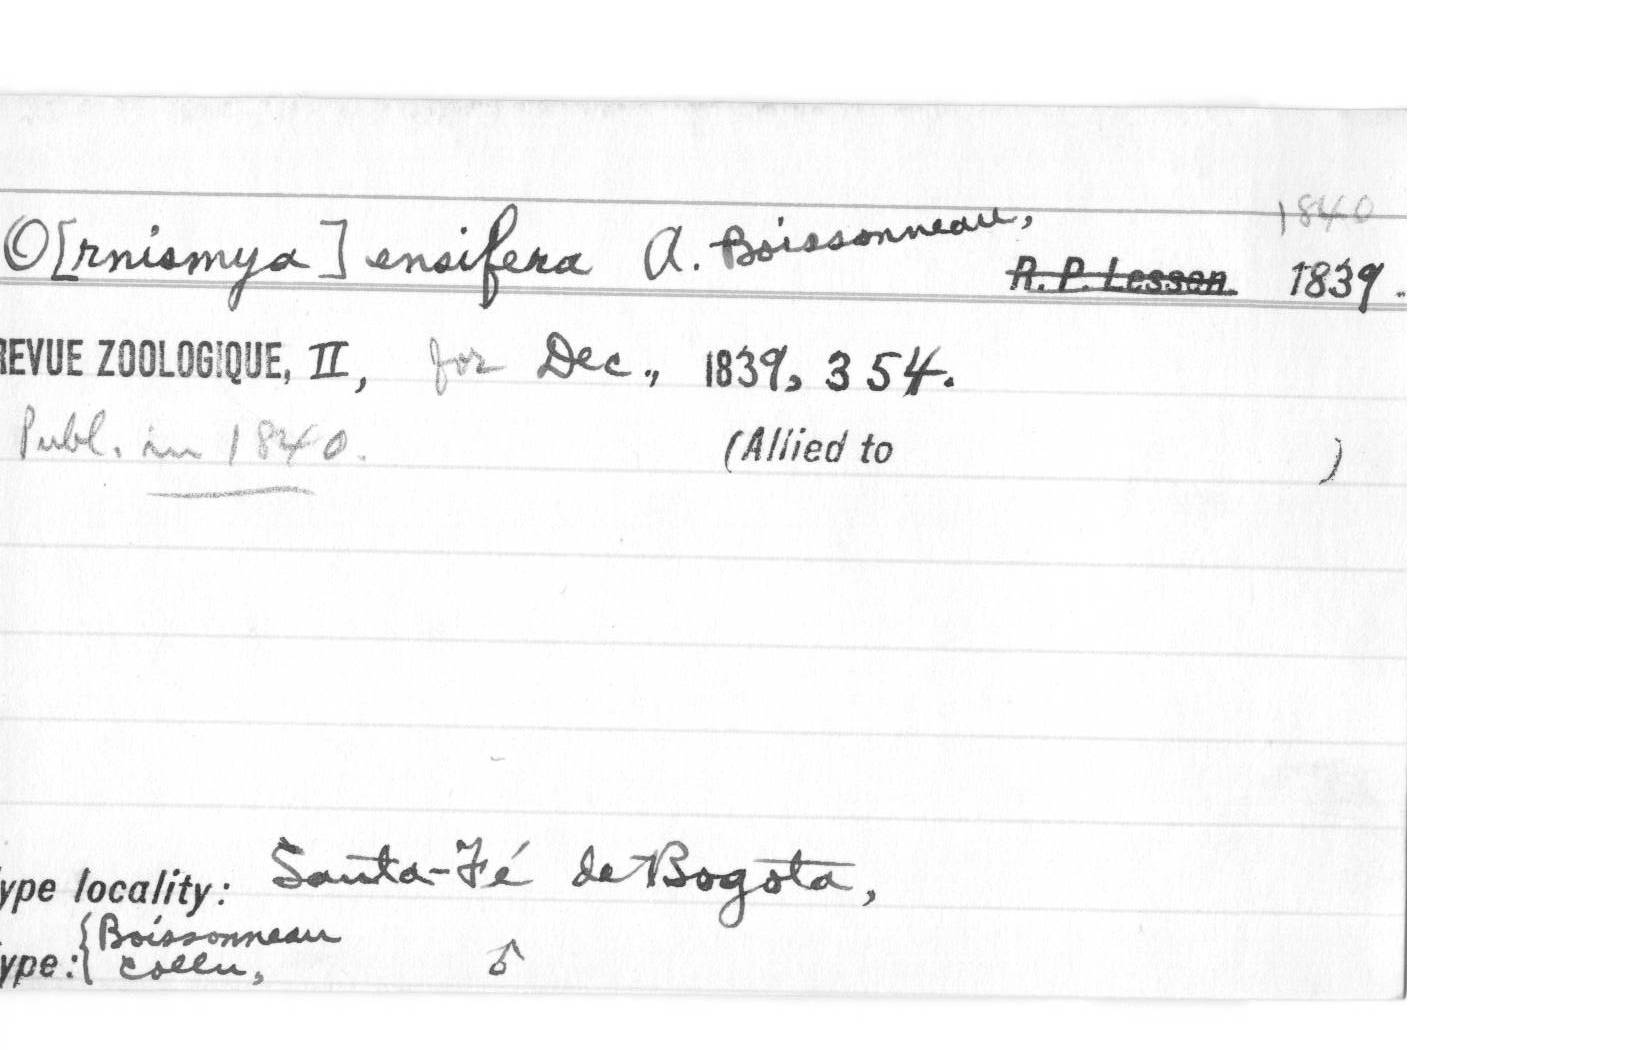 1840
O[rnismya] ensifera A. Boissonneau, R. P. Lesson 1839.
REVUE ZOOLOGIQUE, II, for Dec., 1839, 354.
Publ. in 1840. (Allied to )
ype locality: Santa-Fé de Bogota,
ype: { Boissonneau
Colln, ♂